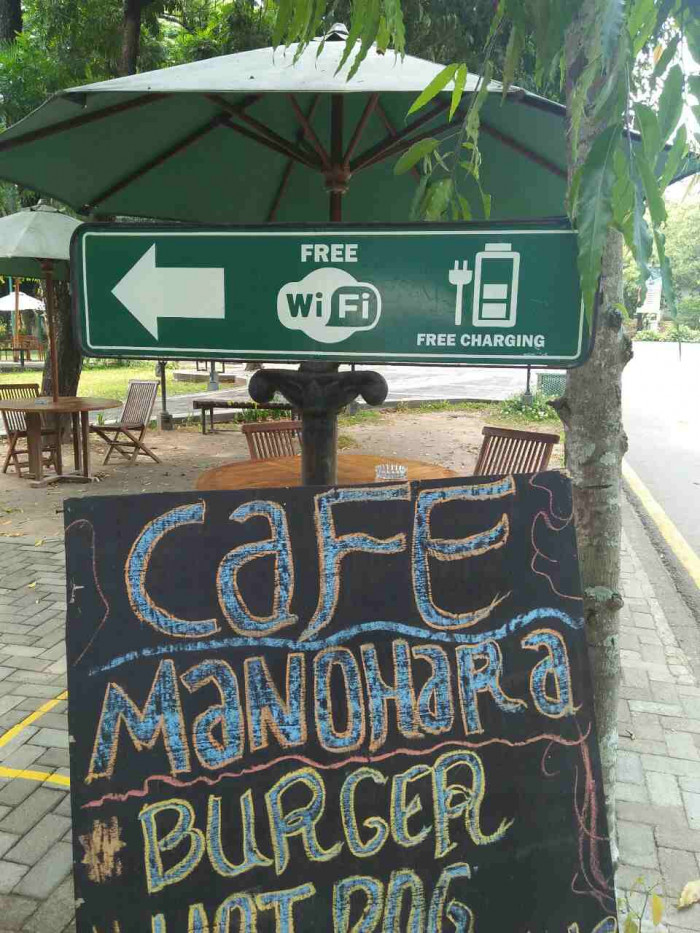 FREE
WiFi
FREE CHARGING
CaFE
MaNOHaRa
BURGER
HOT DOG